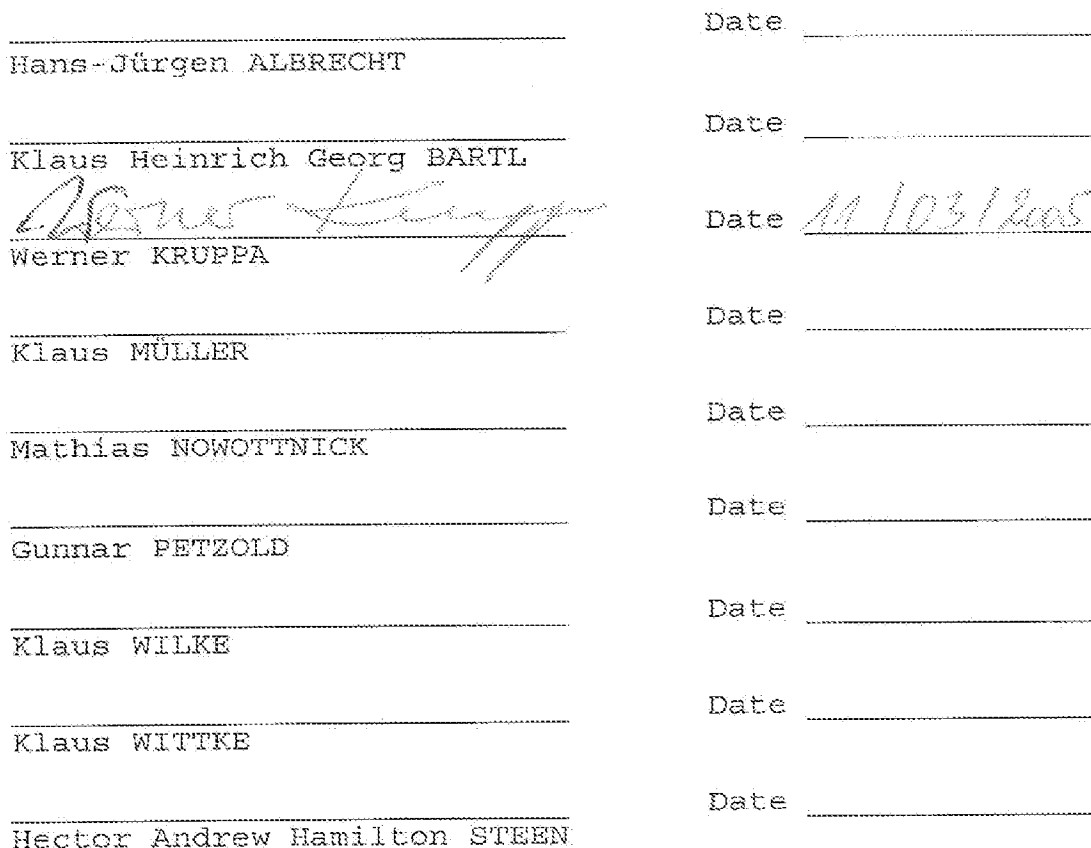 Date
Hans-Jürgen ALBRECHT
Date
Klaus Heinrich Georg BARTL
Werner Kruppa Date 11/03/2005
Werner KRUPPA
Date
Klaus MÜLLER
Date
Mathias NOWOTTNICK
Date
Gunnar PETZOLD
Date
Klaus WILKE
Date
Klaus WITTKE
Date
Hector Andrew Hamilton STEEN